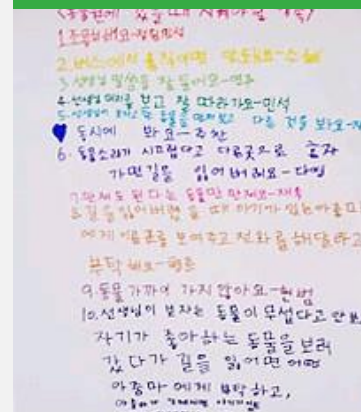 <동물원에 있을 때 지켜야 할 약속>
1. 조용히 해요-
2. 버스에서 움직이면 안돼요-
3. 선생님 말씀을 잘 들어요-연우
4. 선생님 머리를 보고 잘 따라가요-민석
5. 선생님이 동물을 만져보고 다른 것을 봐요-
동시에 봐요-주찬
6. 동물소리가 시끄럽다고 다른곳으로 혼자
가면길을 잃어버려요-다영
7. 만져도 된다는 동물만 만져요-재욱
8. 길을 잃어버렸을 때 아기가 있는아줌마
에게 이름표를 보여주고 전화를 해달라고
부탁해요-형준
9. 동물 가까이 가지 않아요-한범
10. 선생님이 보자는 동물이 무섭다고 안보
자기가 좋아하는 동물을 보러
갔다가 길을 잃으면 어떤
아줌마에게 부탁하고,